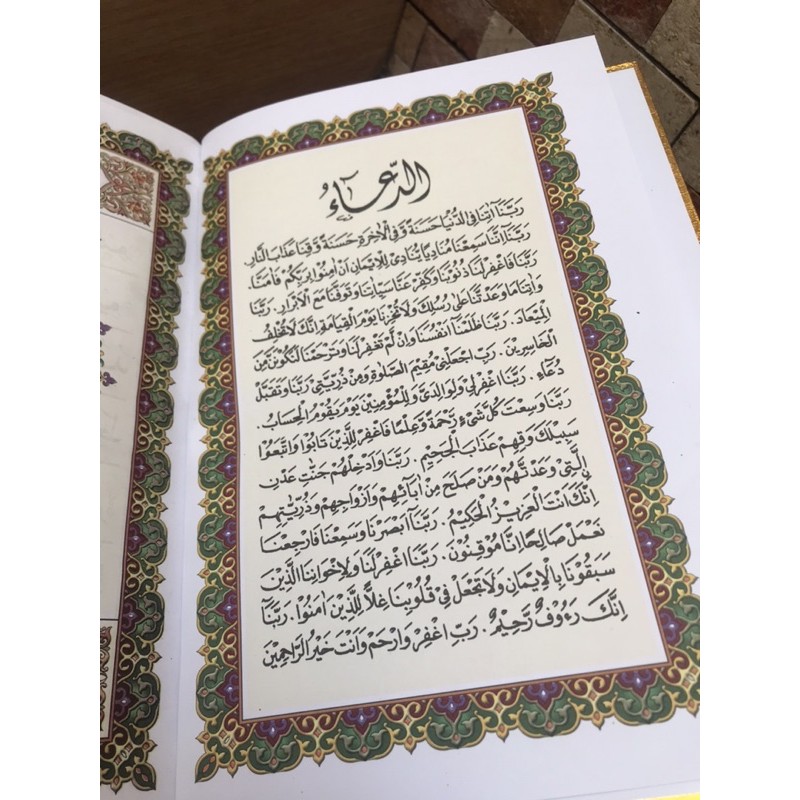 الدُّعَاءُ
رَبَّنَا اٰتِنَا فِي الدُّنْيَا حَسَنَةً وَفِي الْاٰخِرَةِ حَسَنَةً وَقِنَا عَذَابَ النَّارِ.
رَبَّنَا اِنَّنَا سَمِعْنَا مُنَادِيًا يُنَادِي لِلْاِيْمَانِ اَنْ اٰمِنُوا بِرَبِّكُمْ فَاٰمَنَّا.
رَبَّنَا فَاغْفِرْ لَنَا ذُنُوْبَنَا وَكَفِّرْ عَنَّا سَيِّاٰتِنَا وَتَوَفَّنَا مَعَ الْاَبْرَارِ. رَبَّنَا
وَاٰتِنَا مَا وَعَدْتَنَا عَلٰى رُسُلِكَ وَلَا تُخْزِنَا يَوْمَ الْقِيَامَةِ اِنَّكَ لَا تُخْلِفُ
الْمِيْعَادَ. رَبَّنَا ظَلَمْنَا اَنْفُسَنَا وَاِنْ لَمْ تَغْفِرْ لَنَا وَتَرْحَمْنَا لَنَكُوْنَنَّ مِنَ
الْخَاسِرِيْنَ. رَبِّ اجْعَلْنِي مُقِيْمَ الصَّلٰوةِ وَمِنْ ذُرِّيَّتِي رَبَّنَا وَتَقَبَّلْ
دُعَاءِ. رَبَّنَا اغْفِرْ لِي وَلِوَالِدَيَّ وَلِلْمُؤْمِنِيْنَ يَوْمَ يَقُوْمُ الْحِسَابُ.
رَبَّنَا وَسِعْتَ كُلَّ شَيْءٍ رَحْمَةً وَعِلْمًا فَاغْفِرْ لِلَّذِيْنَ تَابُوْا وَاتَّبَعُوْا
سَبِيْلَكَ وَقِهِمْ عَذَابَ الْجَحِيْمِ. رَبَّنَا وَاَدْخِلْهُمْ جَنَّاتِ عَدْنٍ
الَّتِي وَعَدْتَهُمْ وَمَنْ صَلَحَ مِنْ اٰبَائِهِمْ وَاَزْوَاجِهِمْ وَذُرِّيَّتِهِمْ
اِنَّكَ اَنْتَ الْعَزِيْزُ الْحَكِيْمُ. رَبَّنَا اَبْصَرْنَا وَسَمِعْنَا فَارْجِعْنَا
نَعْمَلْ صَالِحًا اِنَّا مُوْقِنُوْنَ. رَبَّنَا اغْفِرْ لَنَا وَلِاِخْوَانِنَا الَّذِيْنَ
سَبَقُوْنَا بِالْاِيْمَانِ وَلَا تَجْعَلْ فِي قُلُوْبِنَا غِلًّا لِلَّذِيْنَ اٰمَنُوْا. رَبَّنَا
اِنَّكَ رَءُوْفٌ رَّحِيْمٌ. رَبِّ اغْفِرْ وَارْحَمْ وَاَنْتَ خَيْرُ الرَّاحِمِيْنَ